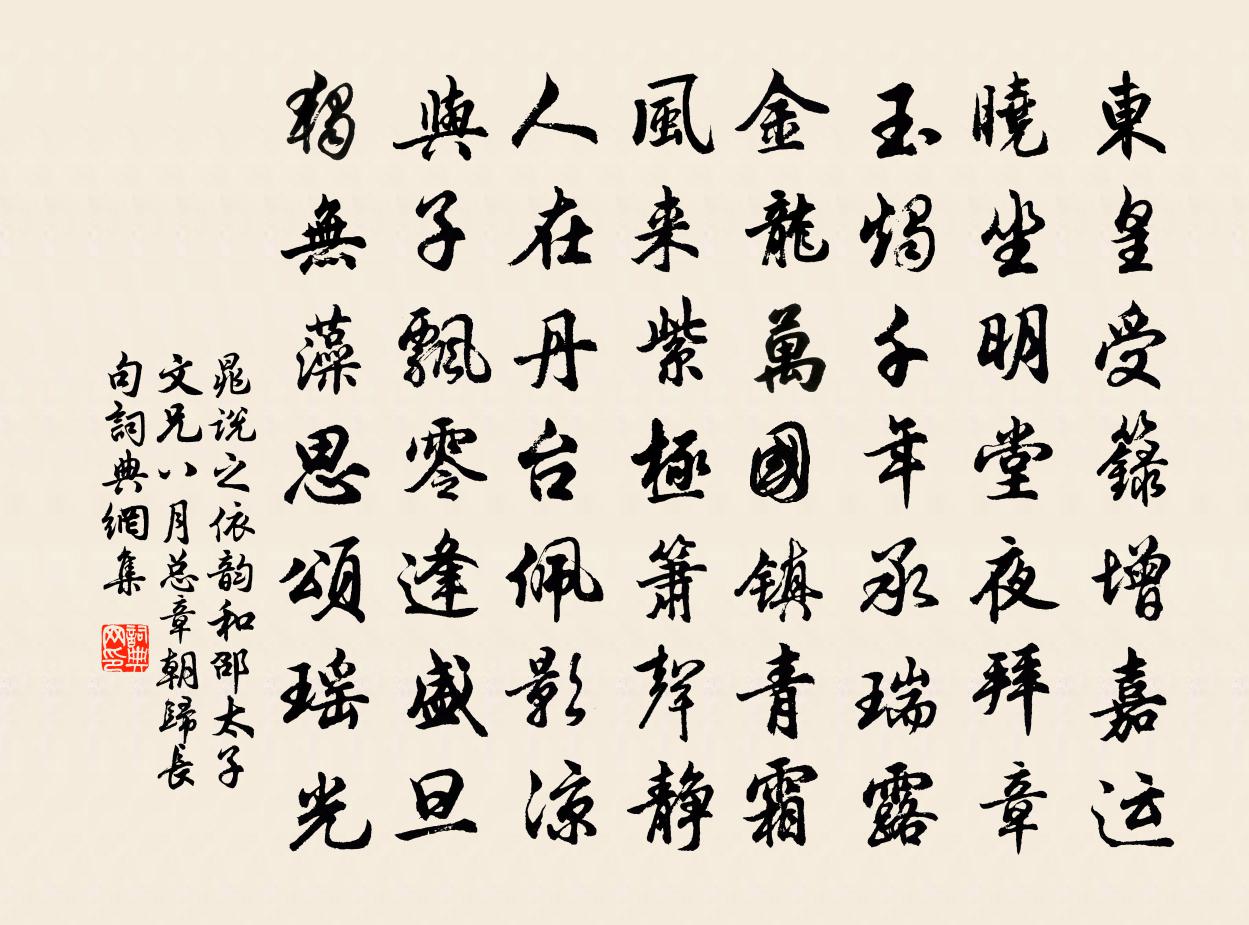 東皇受籙增嘉运
曉坐明堂夜拜章
玉燭千年承瑞露
金龍萬國鎮青霜
風来紫極簫聲静
人在丹台佩影凉
與子飄零逢盛旦
獨無藻思頌瑶光
晁说之依韵和邵太子
文兄八月总章朝歸長
句詞典網集
詞典网印